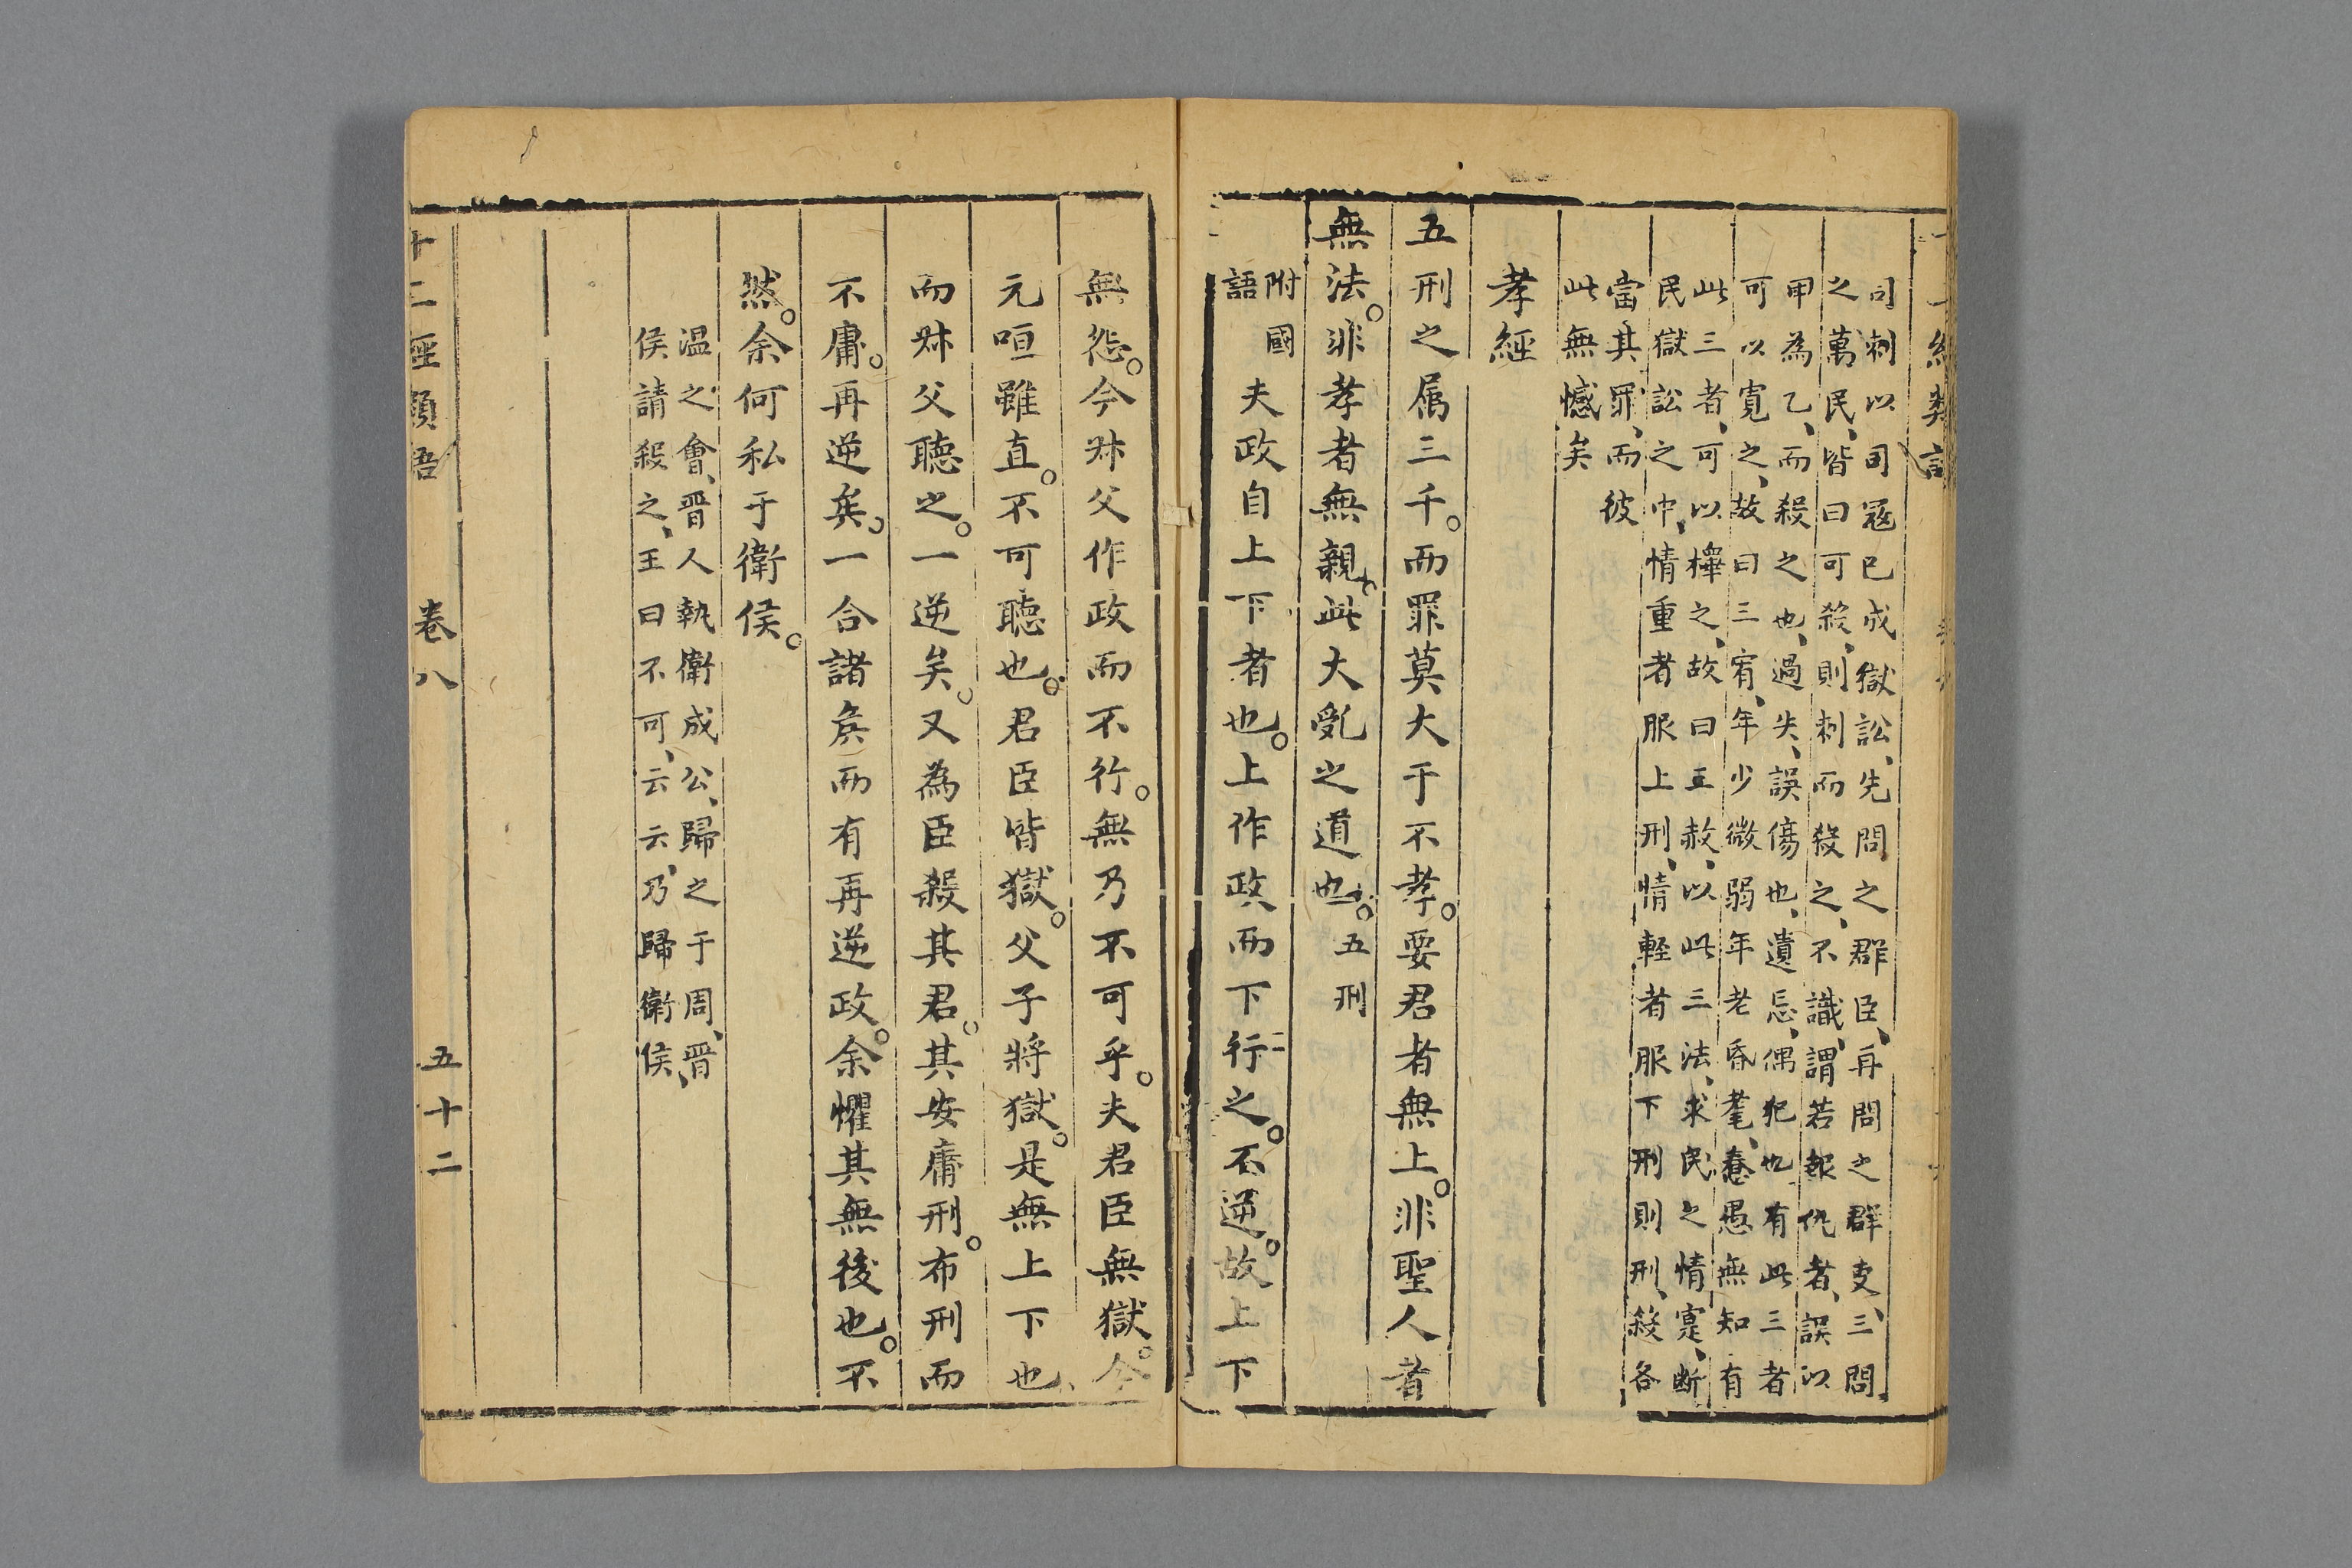 司刺以司寇已成獄訟、先問之群臣、再問之群吏、三問
之萬民、皆曰可殺、則刺而殺之、不識、謂若報仇者、誤以
甲為乙、而殺之也、過失、誤傷也、遺忘、偶犯也、有此三者
可以寬之、故曰三宥、年少微弱年老昏耄、惷愚無知有
此三者、可以檡之、故曰三赦、以此三法、求民之情寔、断
民獄訟之中、情重者服上刑、情輕者服下刑則刑、殺各
當其罪、而彼
此無憾矣
孝經
五刑之屬三千。而罪莫大于不孝。要君者無上。非聖人者
無法。非孝者無親。此大亂之道也。五刑
附國
語
夫政自上下者也。上作政而下行之。不逆。故上下
無怨。今叔父作政而不行。無乃不可乎。夫君臣無獄。今
元咺雖直。不可聽也。君臣皆獄。父子將獄。是無上下也、
而叔父聽之。一逆矣。又為臣殺其君。其安庸刑。布刑而
不庸。再逆矣。一合諸矦而有再逆政。余懼其無後也。不
然。余何私于衛侯。
温之會、晋人執衛成公、歸之于周、晋
侯請殺之、王曰不可、云云、乃歸衛侯、
十二經類語
卷八
五十二